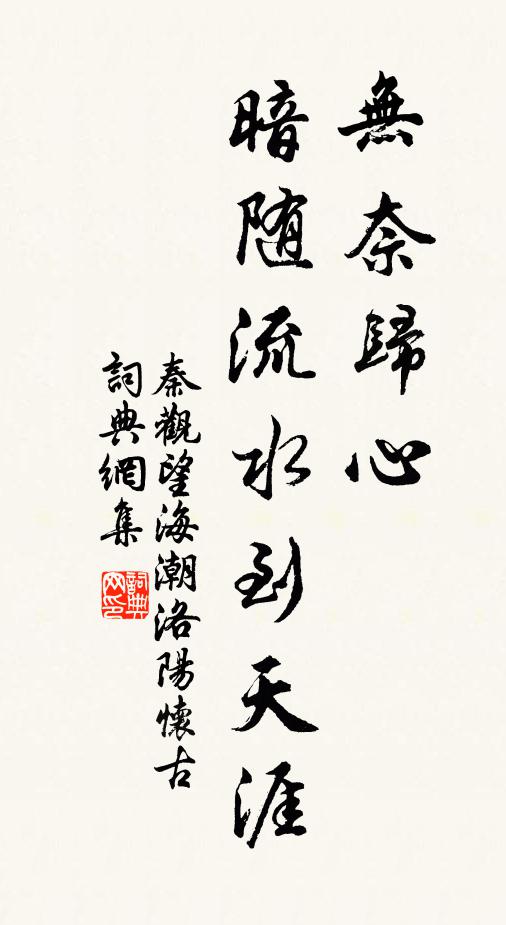 無奈歸心
暗随流水到天涯
秦觀望海潮洛陽懷古
詞典網集
詞典
网印